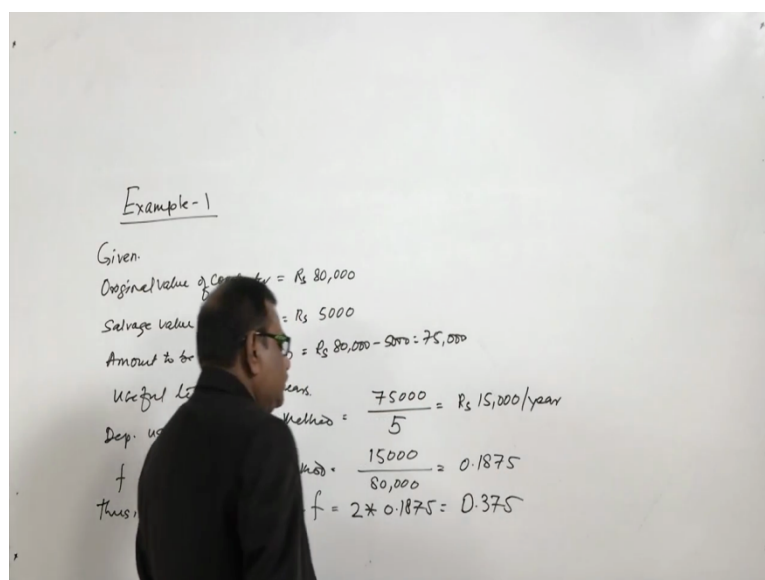 Example-1
Given.
Original value of = Rs 80,000
Salvage value = Rs 5000
Amount to be = Rs 80,000 - 5000 = 75,000
useful
Dep. method = 75000 / 5 = Rs 15,000/year
f 15000 / 80,000 = 0.1875
Thus, f = 2 * 0.1875 = 0.375